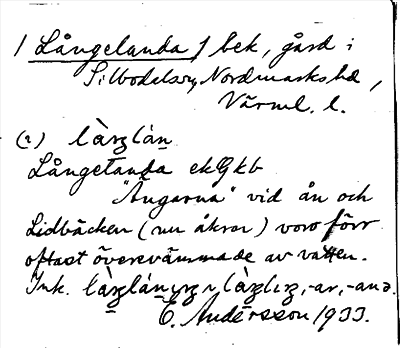 / Långelanda / bek, gård i
Silbodals sn, Nordmarks hd,
Värml. l.
(?) làŋlán
Långelanda ek G kb
"Ängarna" vid ån och
Lidbäcken (nu åkrar) voro förr
oftast översvämmade av vatten.
Ink.
E. Andersson 1933.